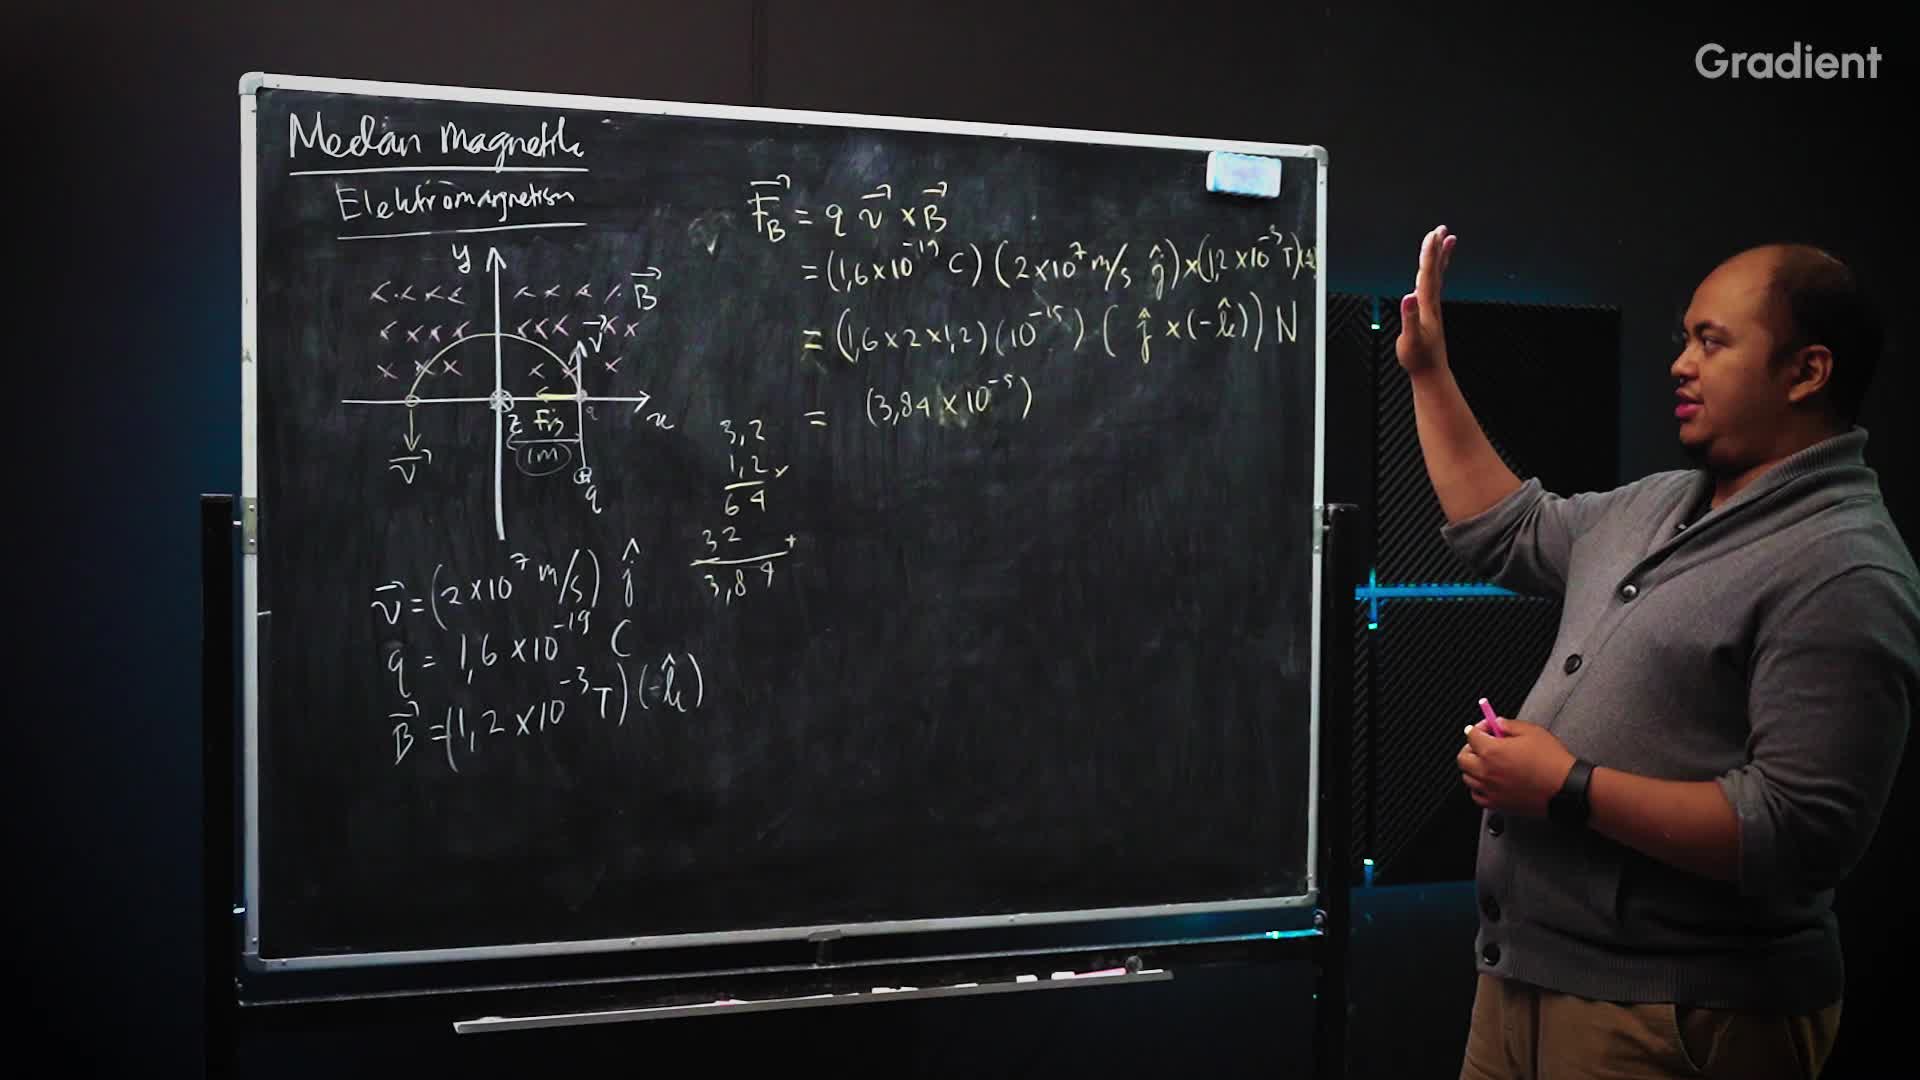 Gradient
Medan Magnetik
Elektromagnetism
y
B⃗
v⃗
q
x
z
F_B
1m
v⃗
q
v⃗ = (2×10⁷ m/s) ĵ
q = 1,6×10⁻¹⁹ C
B⃗ = (1,2×10⁻³T)(-k̂)
F⃗_B = q v⃗ × B⃗
= (1,6×10⁻¹⁹ C) (2×10⁷ m/s ĵ) × (1,2×10⁻³ T)(-k̂)
= (1,6×2×1,2)(10⁻¹⁵) (ĵ × (-k̂)) N
= (3,84×10⁻⁵)
3,2
1,2 ×
64
32 +
3,84